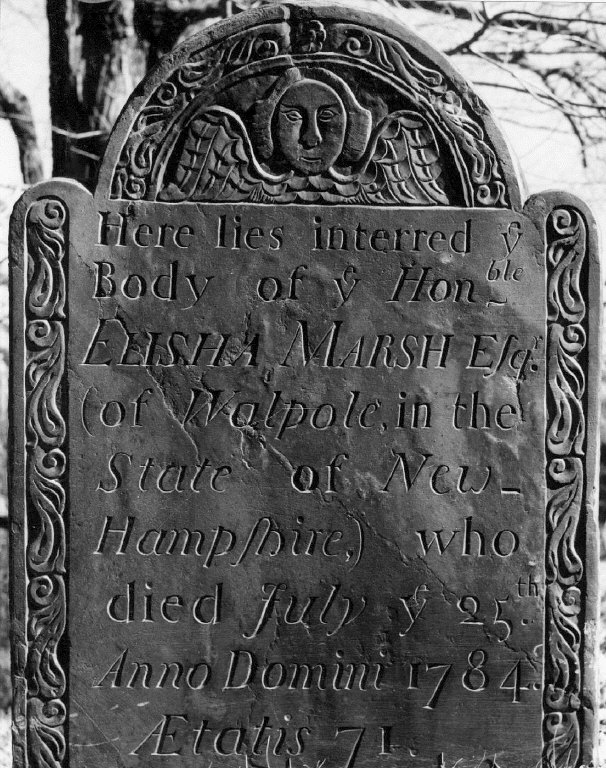 Here lies interred yͤ
Body of yͤ Honble
ELISHA MARSH Eſqr.
(of Walpole, in the
State of New-
Hampſhire,) who
died July yͤ 25th.
Anno Domini 1784.
Ætatis 71.